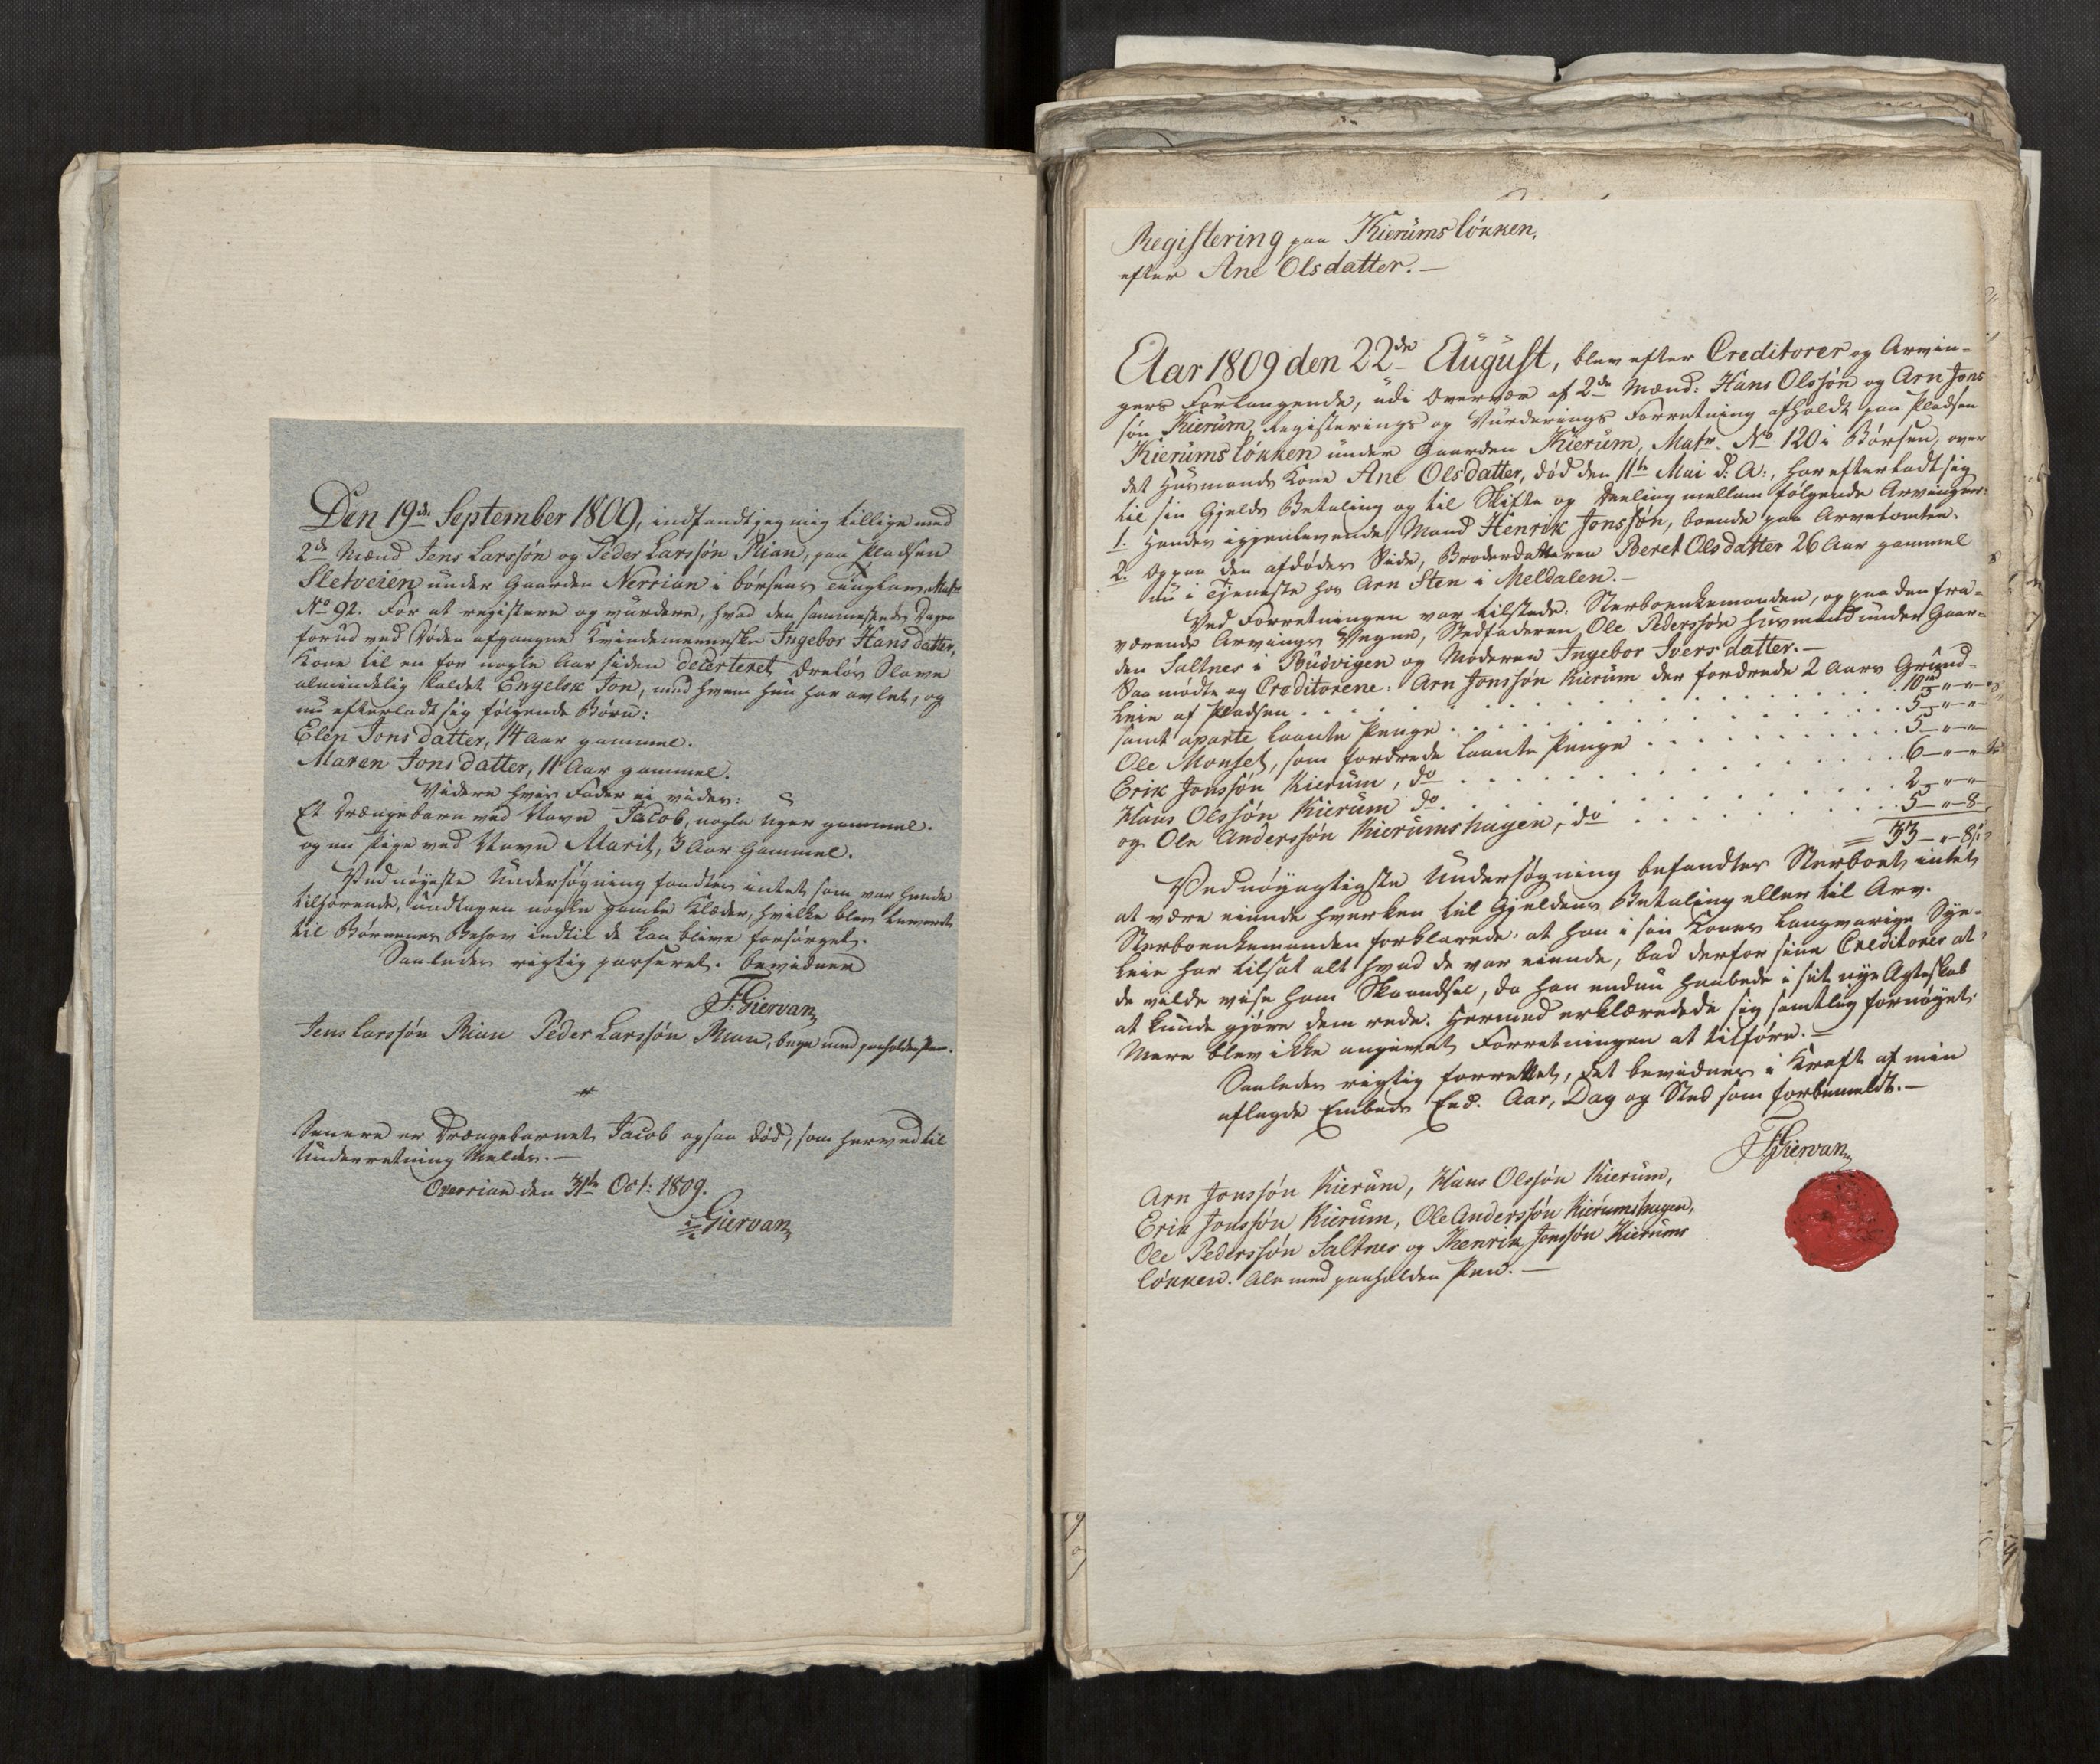 Den 19de September 1809, indfandt jeg mig tillige med
2de Mænd Jens Larssøn og Peder Larssøn Rian, paa Pladsen
Sletveien under Gaarden Nerrian i børsens Tinglaw, Matr
No 92. For at registere og vurdere, hvad den sammesteds Dagen
forud ved Døden afgangne Qvindemenneske Ingebor Hansdatter,
Kone til en for nogle Aar siden deserteret Æreløs Slave
almindelig kaldet Engelsk Jon, med hvem hun har avlet, og
nu efterladt sig følgende Børn:
Elen Jonsdatter, 14 Aar gammel.
Maren Jonsdatter, 11 Aar gammel.
Videre hvis Fader ei vides:
Et Drængebarn ved Navn Jacob, nogle Uger gammel.
og en Pige ved Navn Marit, 3 Aar gammel.
Ved nøyeste Undersøgning fandtes intet som var hende
tilhørende, undtagen nogle gamle Klæder, hvilke blev leveret
til Børnenes Behov indtil de kan blive forsørget.
Saaledes rigtig passeret. bevidner
F. Giervan
Jens Larssøn Rian Peder Larssøn Rian, begge med paaholden Pen.
Senere er Drængebarnet Jacob ogsaa død, som herved til
Underretning Meldes.—
Overrian den 31te Oct: 1809.
Giervan
Registering paa Kierumsløkken,
efter Ane Olsdatter.—
Aar 1809 den 22de August, blev efter Creditorer og Arvin-
gers Forlangende, udi Overvær af 2de Mænd: Hans Olssøn og Arn Jons
søn Kierum, Registerings og Vurderings Forretning afholdt paa Pladsen
Kierumsløkken under Gaarden Kierum, Matr. No 120 i Børsen, over
det Husmands Kone Ane Olsdatter, død den 11te Mai d: A:, har efterladt sig
til sin Gjelds Betaling og til Skifte og Deeling mellem følgende Arvinger:
1. Hendes igjenlevende Mand Henrik Jonssøn, boende paa Arvetomten.
2. Og paa den afdødes Side, Broderdatteren Beret Olsdatter 26 Aar gammel
nu i Tjeneste hos Arn Sten i Meldalen.—
Ved Forretningen var tilstede: Sterboenkemanden, og paa den fra-
værende Arvings Vegne, Stedfaderen Ole Pederssøn Husmand under Gaar-
den Saltnes i Budvigen og Moderen Ingebor Iversdatter.—
Saa mødte og Creditorene: Arn Jonssøn Kierum der fordrede 2 Aars Grund-
leie af Pladsen . . . . . 10 rd – " – "
samt aparte laante Penge . . . . . 5 – " – "
Ole Monset, som fordrede laante Penge . . . . . 5 – " – "
Erik Jonssøn Kierum, do . . . . . 6 – " – "
Hans Olssøn Kierum do. . . . . . 2 – " – "
og Ole Anderssøn Kierumshagen, do . . . . . 5 – " – 8
= 33 – " – 8 s
Ved nøyagtigste Undersøgning befandtes Sterboet intet
at være eiende hverken til Gjeldens Betaling eller til Arv.
Sterboenkemanden forklarede: at han i sin Kones langvarige Syge-
leie har tilsat alt hvad de var eiende, bad derfor sine Creditorer at
de vilde vise ham Skaansel, da han endnu haabede i sit nye Ægteskab
at kunde gjøre dem rede. Hermed erklærede de sig samtlig fornøyet.
Mere blev ikke angivet Forretningen at tilføre.—
Saaledes rigtig forrettet, det bevidnes i Kraft af min
aflagde Embeds Eed. Aar, Dag og Sted som forbemeldt.—
F Giervan
Arn Jonssøn Kierum, Hans Olssøn Kierum,
Erik Jonssøn Kierum, Ole Anderssøn Kierumshagen,
Ole Pederssøn Saltnes og Henrik Jonssøn Kierums
løkken. Alle med paaholden Pen.—